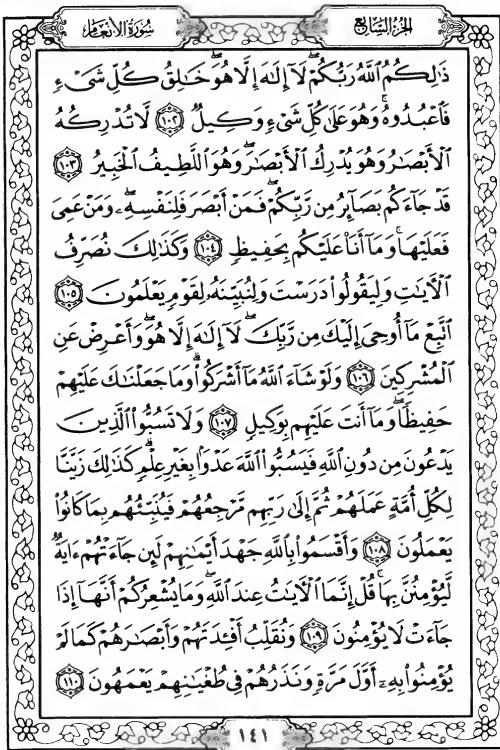 الجزء السابع
سورة الأنعام
ذَٰلِكُمُ ٱللَّهُ رَبُّكُمْ ۖ لَآ إِلَٰهَ إِلَّا هُوَ ۖ خَٰلِقُ كُلِّ شَىْءٍ
فَٱعْبُدُوهُ ۚ وَهُوَ عَلَىٰ كُلِّ شَىْءٍ وَكِيلٌ ١٠٢ لَّا تُدْرِكُهُ
ٱلْأَبْصَٰرُ وَهُوَ يُدْرِكُ ٱلْأَبْصَٰرَ ۖ وَهُوَ ٱللَّطِيفُ ٱلْخَبِيرُ ١٠٣
قَدْ جَآءَكُم بَصَآئِرُ مِن رَّبِّكُمْ ۖ فَمَنْ أَبْصَرَ فَلِنَفْسِهِۦ ۖ وَمَنْ عَمِىَ
فَعَلَيْهَا ۚ وَمَآ أَنَا۠ عَلَيْكُم بِحَفِيظٍ ١٠٤ وَكَذَٰلِكَ نُصَرِّفُ
ٱلْءَايَٰتِ وَلِيَقُولُوا۟ دَرَسْتَ وَلِنُبَيِّنَهُۥ لِقَوْمٍ يَعْلَمُونَ ١٠٥
ٱتَّبِعْ مَآ أُوحِىَ إِلَيْكَ مِن رَّبِّكَ ۖ لَآ إِلَٰهَ إِلَّا هُوَ ۖ وَأَعْرِضْ عَنِ
ٱلْمُشْرِكِينَ ١٠٦ وَلَوْ شَآءَ ٱللَّهُ مَآ أَشْرَكُوا۟ ۗ وَمَا جَعَلْنَٰكَ عَلَيْهِمْ
حَفِيظًا ۖ وَمَآ أَنتَ عَلَيْهِم بِوَكِيلٍ ١٠٧ وَلَا تَسُبُّوا۟ ٱلَّذِينَ
يَدْعُونَ مِن دُونِ ٱللَّهِ فَيَسُبُّوا۟ ٱللَّهَ عَدْوًۢا بِغَيْرِ عِلْمٍ ۗ كَذَٰلِكَ زَيَّنَّا
لِكُلِّ أُمَّةٍ عَمَلَهُمْ ثُمَّ إِلَىٰ رَبِّهِم مَّرْجِعُهُمْ فَيُنَبِّئُهُم بِمَا كَانُوا۟
يَعْمَلُونَ ١٠٨ وَأَقْسَمُوا۟ بِٱللَّهِ جَهْدَ أَيْمَٰنِهِمْ لَئِن جَآءَتْهُمْ ءَايَةٌ
لَّيُؤْمِنُنَّ بِهَا ۚ قُلْ إِنَّمَا ٱلْءَايَٰتُ عِندَ ٱللَّهِ ۖ وَمَا يُشْعِرُكُمْ أَنَّهَآ إِذَا
جَآءَتْ لَا يُؤْمِنُونَ ١٠٩ وَنُقَلِّبُ أَفْـِٔدَتَهُمْ وَأَبْصَٰرَهُمْ كَمَا لَمْ
يُؤْمِنُوا۟ بِهِۦٓ أَوَّلَ مَرَّةٍ وَنَذَرُهُمْ فِى طُغْيَٰنِهِمْ يَعْمَهُونَ ١١٠
١٤١